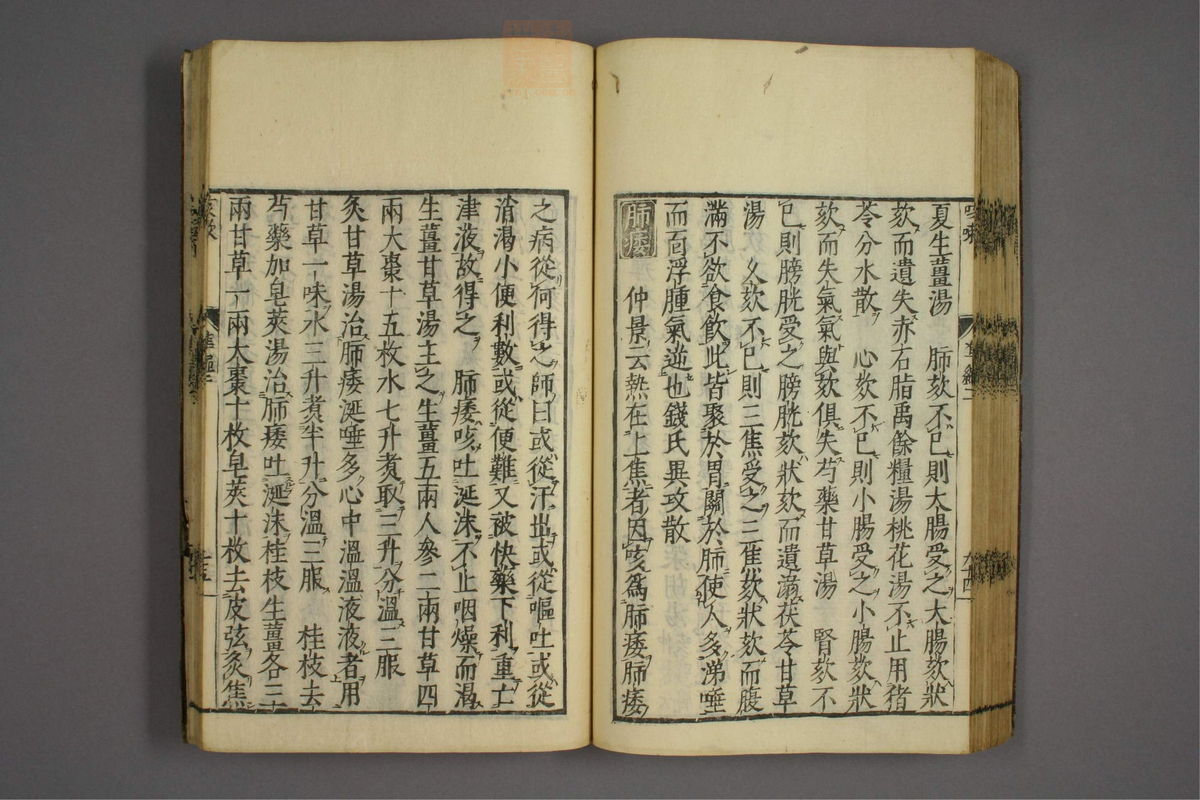 夏生薑湯　肺欬不已則大腸受之大腸欬狀
欬而遺失赤石脂禹餘糧湯桃花湯不止用猪
苓分水散　心欬不已則小腸受之小腸欬狀
欬而失氣氣與欬俱失芍藥甘草湯　腎欬不
已則膀胱受之膀胱欬狀欬而遺溺茯苓甘草
湯　久欬不已則三焦受之三焦欬狀欬而腹
滿不欲食飲此皆聚於胃關於肺使人多涕唾
而面浮腫氣逆也錢氏異攻散
肺痿　仲景云熱在上焦者因咳爲肺痿肺痿
之病從何得之師曰或從汗出或從嘔吐或從
消渴小便利數或從便難又被快藥下利重亡
津液故得之　肺痿咳吐涎沫不止咽燥而渴
生薑甘草湯主之生薑五兩人參二兩甘草四
兩大棗十五枚水七升煮取三升分溫三服
灸甘草湯治肺痿涎唾多心中溫溫液液者用
甘草一味水三升煮半升分溫三服　桂枝去
芍藥加皂莢湯治肺痿吐涎沫桂枝生薑各三
兩甘草一兩大棗十枚皂莢十枚去皮弦灸焦